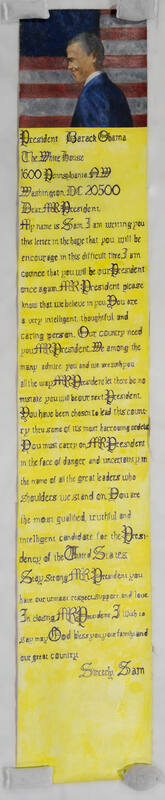 President Barack Obama
The White House
1600 Pennsylvania N.W
Washington, DC 20500
Dear MR President.
My name is Sam. I am writing you
this letter in the hope that you will be
encourage in this difficult time. I am
convince that you will be our President
once again. MR President please
know that we believe in you. You are
a very intelligent, thoughtful and
caring person. Our country need
you MR President. We among the
many admire you and we are with you
all the way. MR President let there be no
mistake you will be our next President.
You have been chosen to lead this coun-
try thru some of its most harrowing ordeals.
You must carry on MR President
in the face of danger and uncertainty in
the name of all the great leaders who
shoulders we stand on. You are
the most qualified, truthful and
intelligent candidate for the Presi-
dency of the United States.
Stay strong MR President you
have our utmost respect, support and love.
In closing MR President, I wish to
say may God bless you, your family and
our great country.
Sincerely, Sam